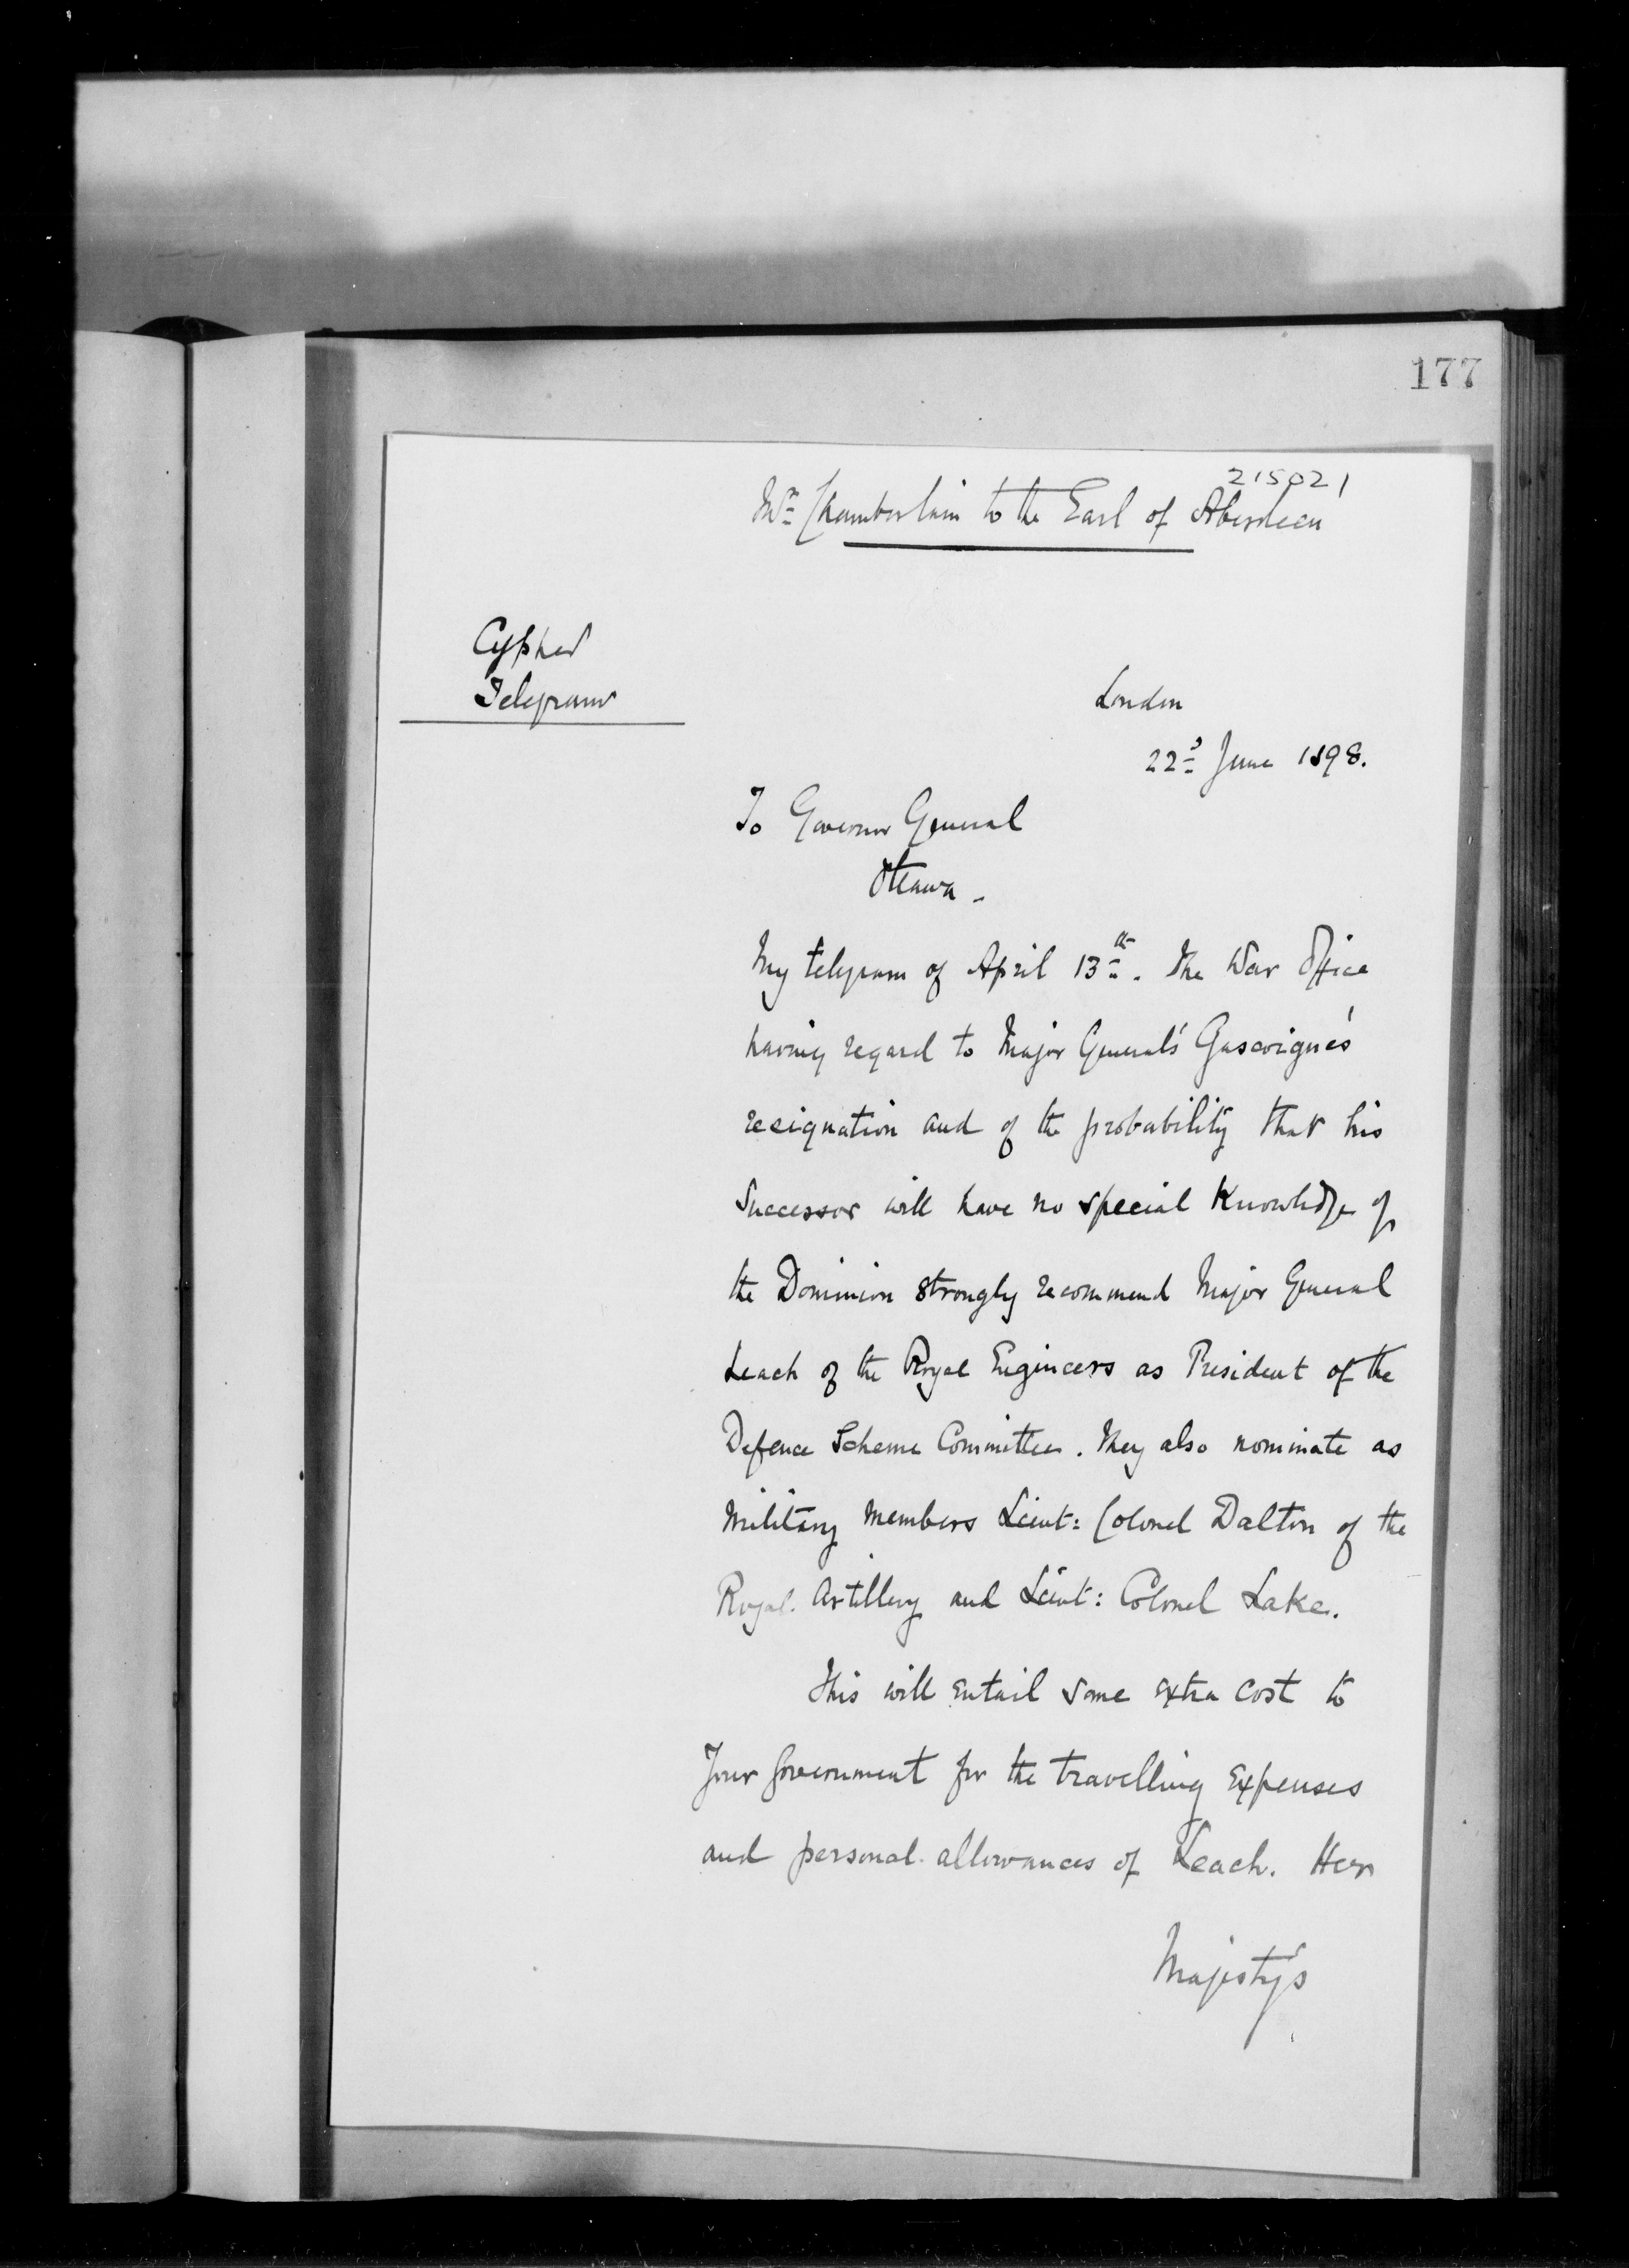 177
215021
Mr Chamberlain to the Earl of Aberdeen
Cypher
Telegram
London
22d June 1898.
To Governor General
Ottawa.
My telegram of April 13th. The War Office
having regard to Major General's Gascoigne's
resignation and of the probability that his
Successor will have no special Knowledge of
the Dominion strongly recommend Major General
Leach of the Royal Engineers as President of the
Defence Scheme Committee. They also nominate as
Military Members Lieut: Colonel Dalton of the
Royal Artillery and Lieut: Colonel Lake.
This will entail some extra cost to
Your Government for the travelling expenses
and personal allowances of Leach. Her
Majesty's